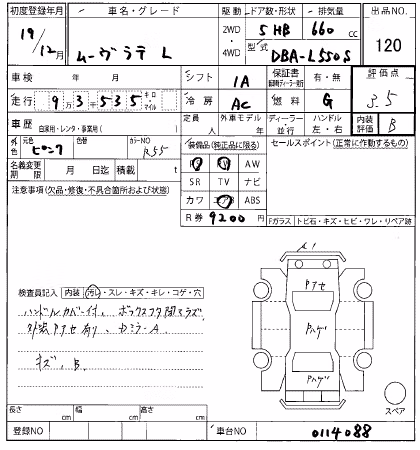 初度登録年月 車名・グレード 駆動 ドア数・形状 排気量 出品NO.
19/12月 ムーヴラテ L 2WD 4WD 5HB 660 cc 120
型式 DBA-L550S
車検 年 月 シフト IA 保証書 有・無 評価点
走行 9万3千535 キロ・マイル 冷房 AC 燃料 G 3.5
車歴 自家用・レンタ・事業用( ) 定員 人 外車モデル 年 ディーラー・並行 ハンドル 左・右 内装評価 B
外色 元色 ピンク 色替 カラーNO R55 装備品(純正品に限る) セールスポイント(正常に作動するもの)
PS PW AW
名義変更期限 月 日迄 積載 t SR TV ナビ
注意事項(欠品・修復・不具合箇所および状態) カワ エアB ABS
R券 9200 円 Fガラス トビ石・キズ・ヒビ・ワレ・リペア跡
A1
Pアセ
検査員記入 内装 汚れ・スレ・キズ・キレ・コゲ・穴
ハンドルカバー付、ボックスフタ閉マラズ Pハゲ
外装Pアセ有り、カミラーA
キズ、B Pハゲ
スペア
長さ cm 幅 cm 高さ cm
登録NO 車台NO 0114088